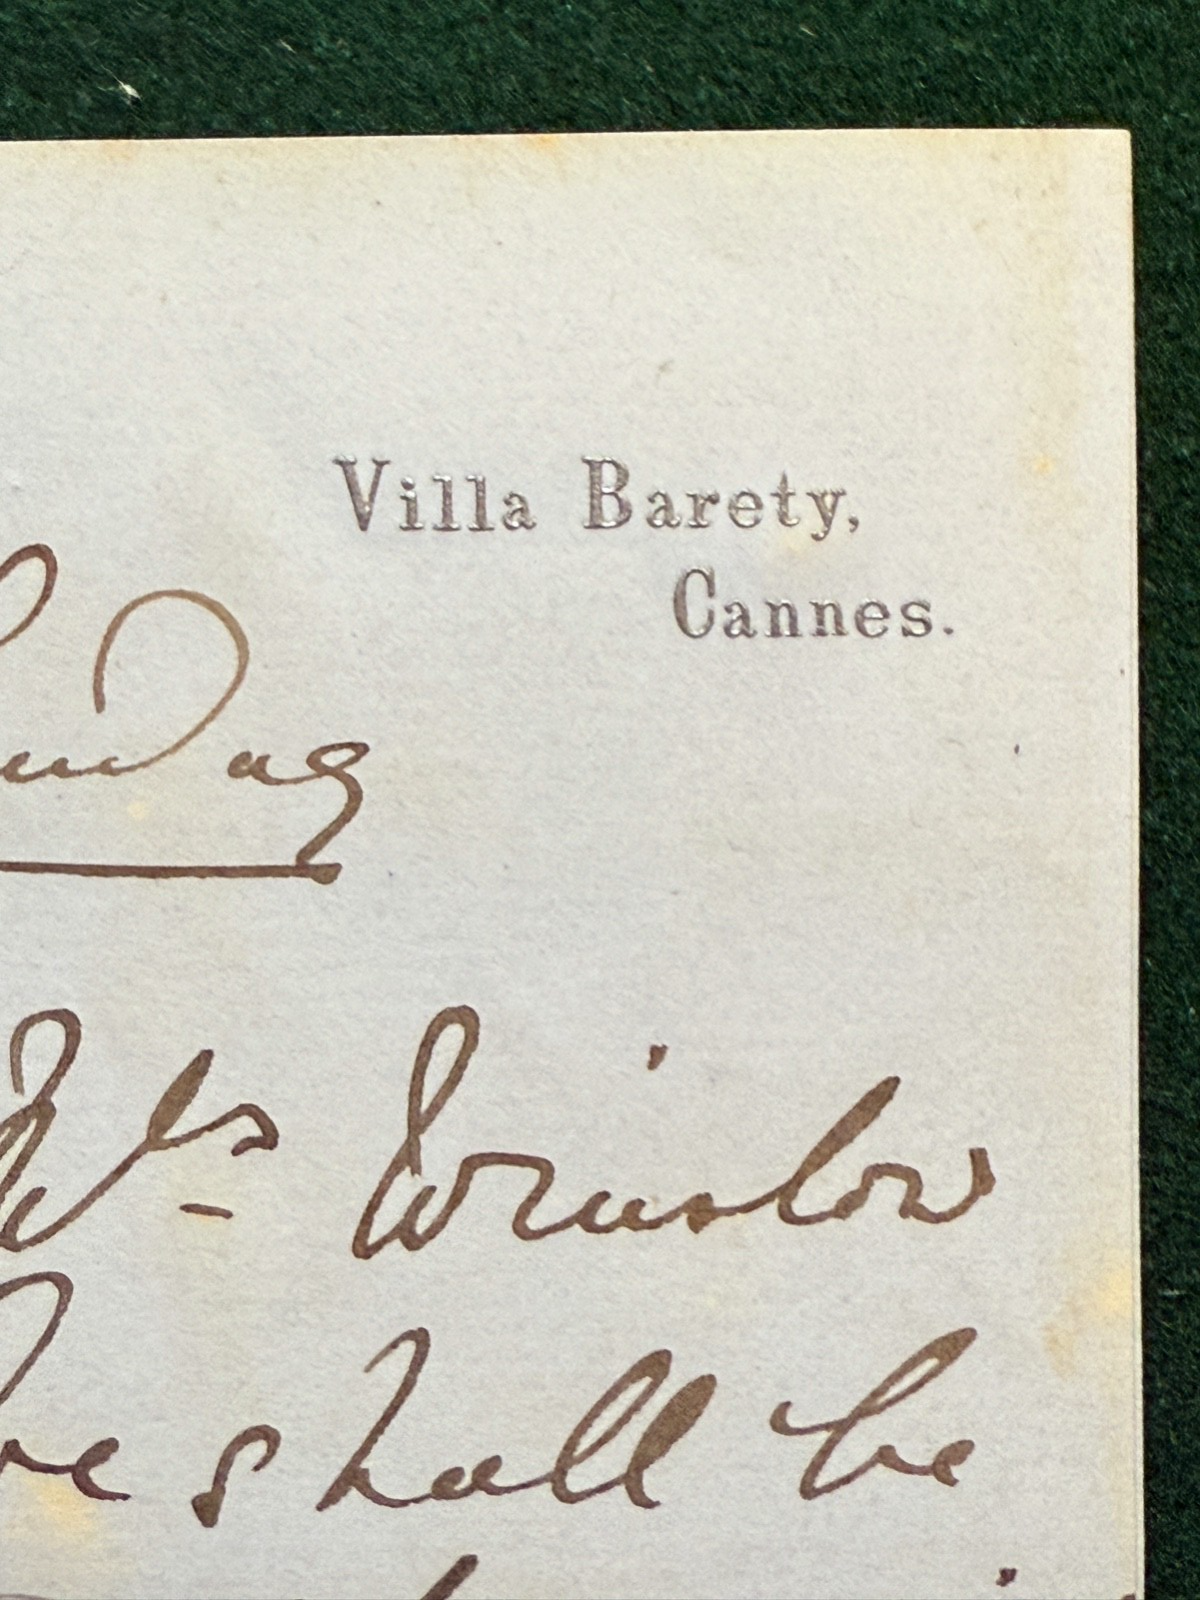 Villa Barety,
Cannes.
Sunday
Mrs Winslow
we shall be